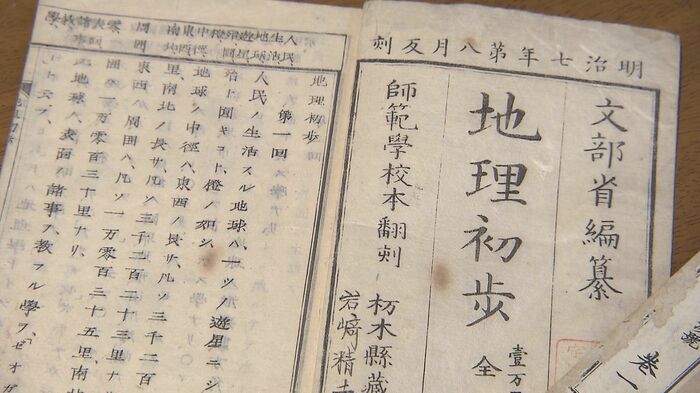 明治七年第八月反刻
文部省編纂
地理初步 全
壹万
師範學校本翻刻
栃木縣藏
岩﨑精
卷一
人民
生活
地球
遊星
橙
中徑
東西
南北
周囲
零
地理初步
第一回
人民ノ生活スル地球ハ一ツノ遊星ニシ
圓キコト、橙ノ如シ、
地球ノ中徑ハ、東西ノ長サ、凡ソ三千二百
里南北ノ長サ、凡ソ三千二百二十三里ナ
東西ノ周囲ハ、凡ソ一万零百二十五里、南北
一万零百三十里ナリ、
地球ノ表面ノ諸事ヲ教フル學ヲ
ト云フ、